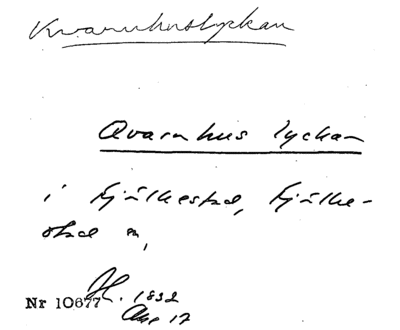 Kvarnhuslyckan
Qvarnhus lyckan
i Fjälkestad, Fjälke-
stad sn,
Nr 10677. 1832
Aug 17